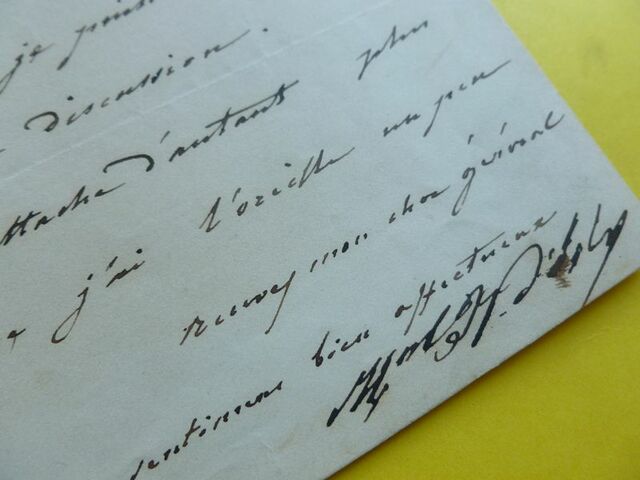 je puis
discussion.
attache d'autant plus
j'ai l'oreille un peu
recevez mon cher général
sentimens bien affectueux
Mal